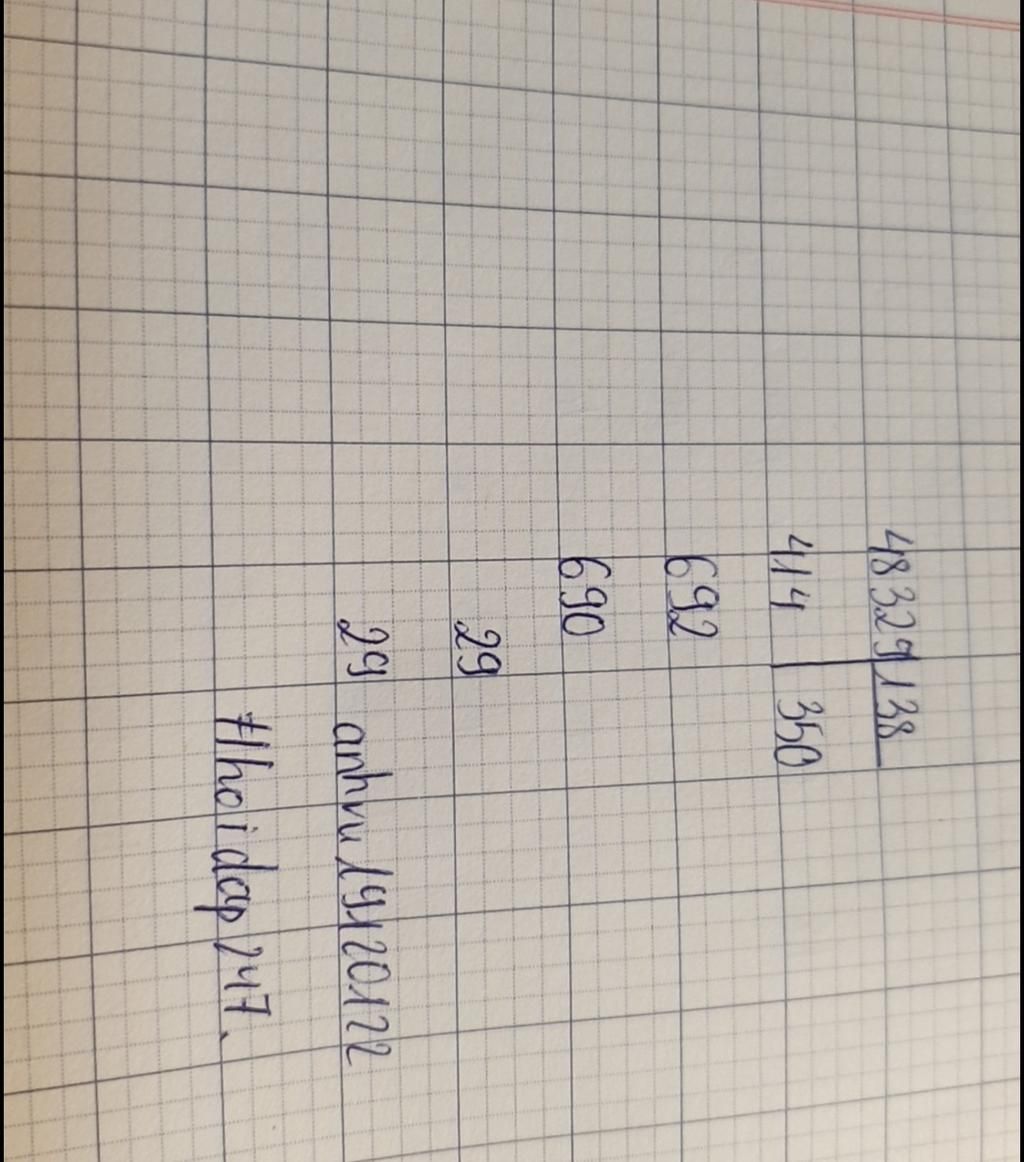 48329 138
414 350
692
690
29
29 anhvu19120122
#hoidap247.